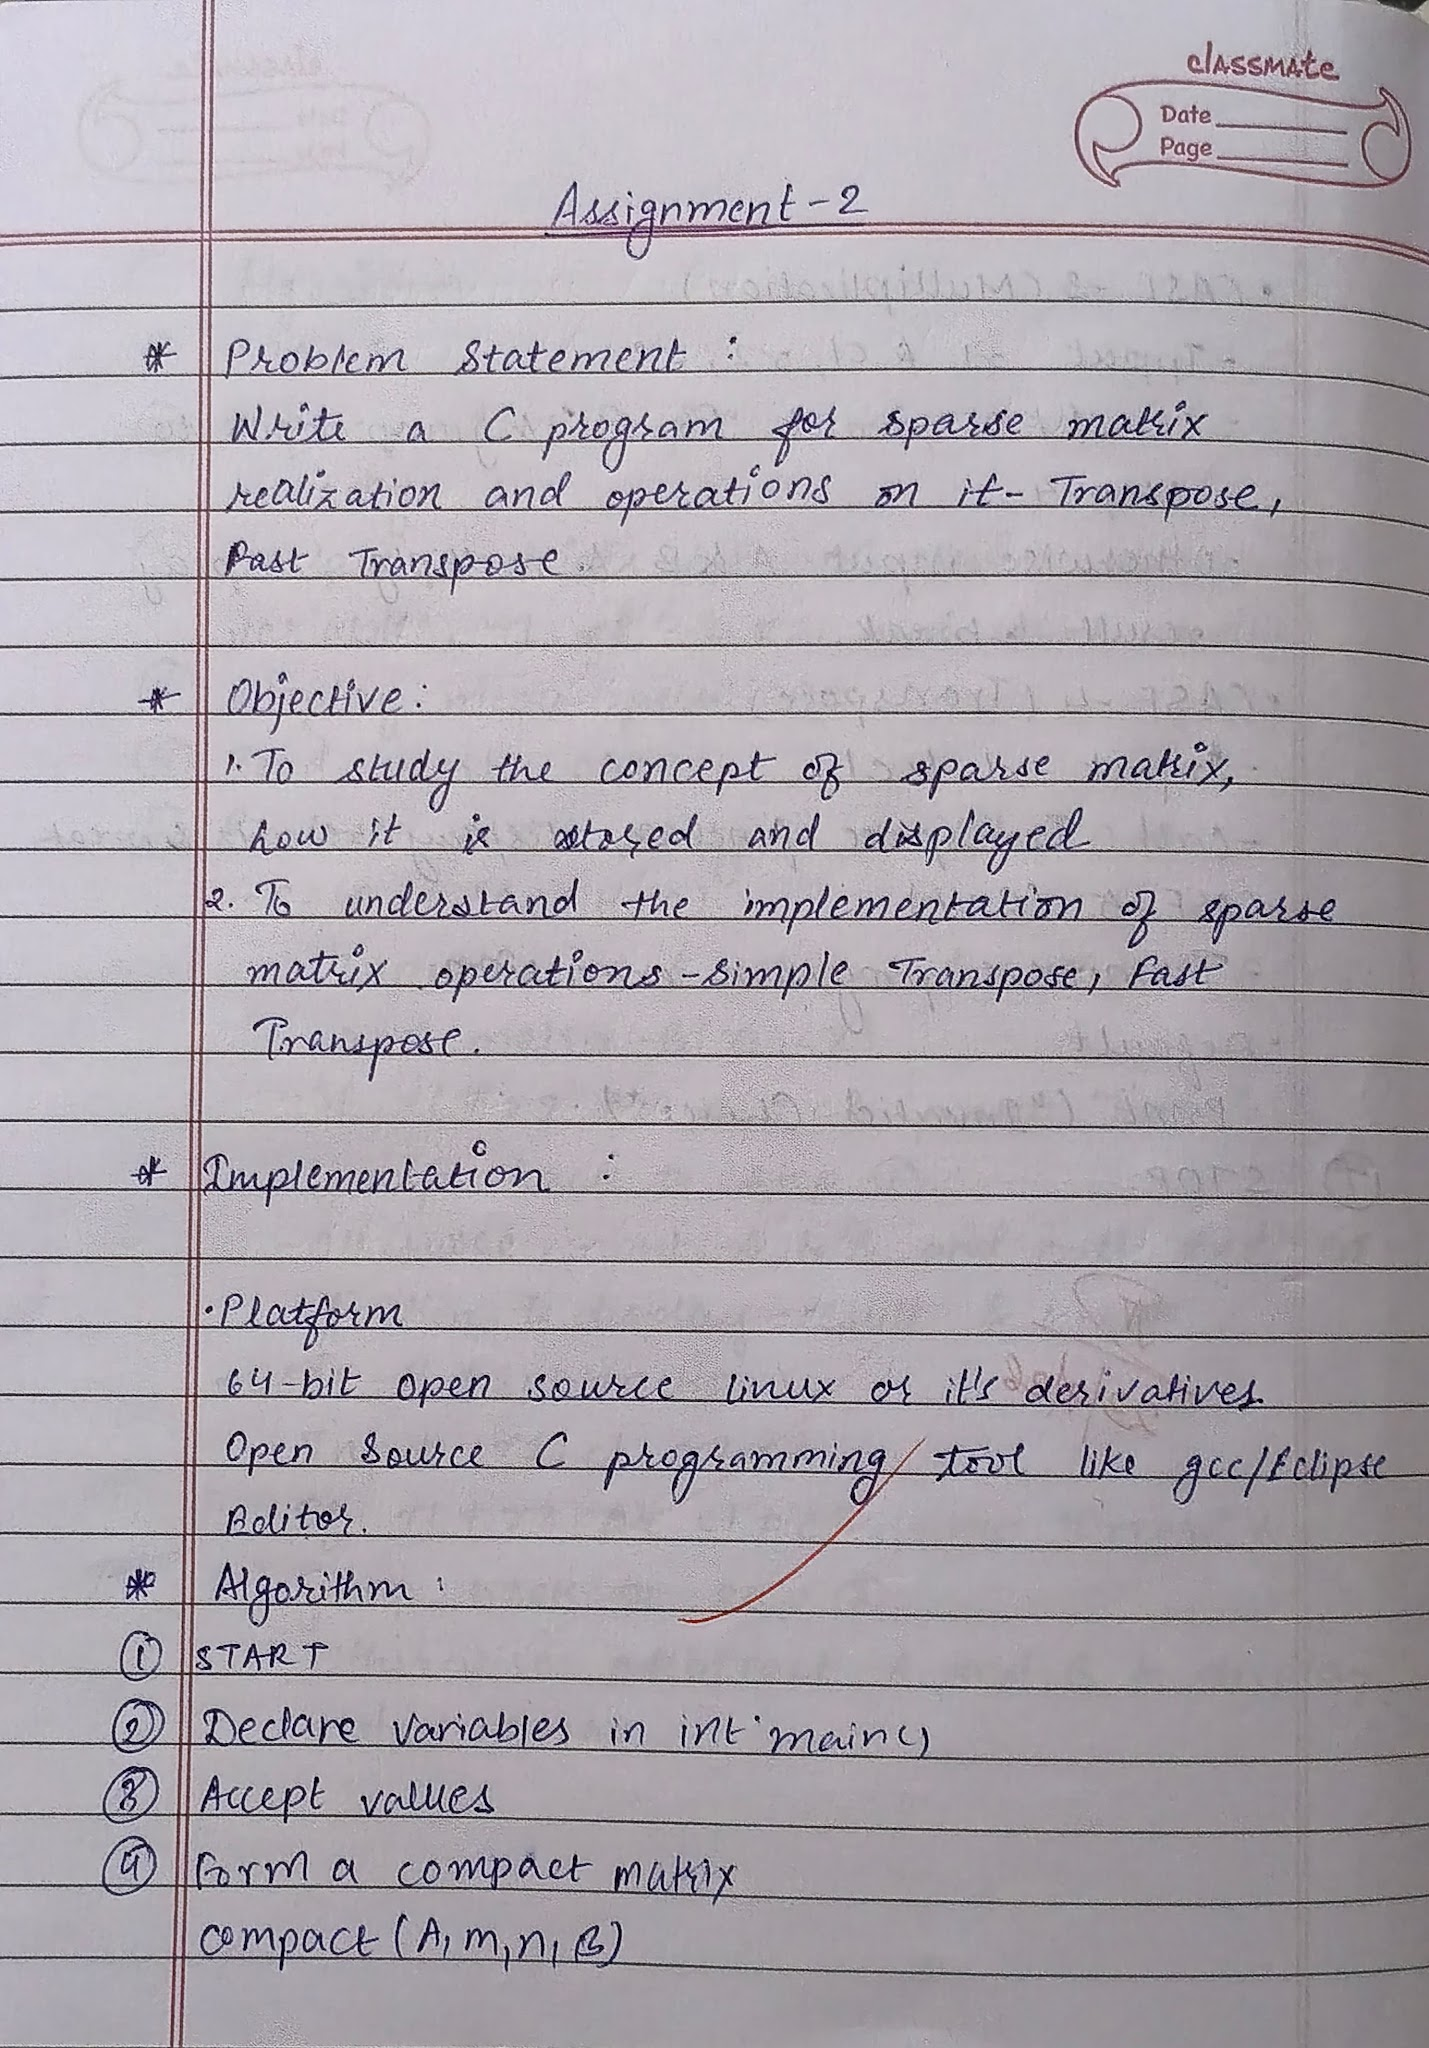 classmate
Date
Page
Assignment-2
* Problem Statement :
Write a C program for sparse matrix
realization and operations on it- Transpose,
Fast Transpose.
* Objective:
1. To study the concept of sparse matrix,
how it is stored and displayed
2. To understand the implementation of sparse
matrix operations -simple Transpose, Fast
Transpose.
* Implementation :
• Platform
64-bit open source linux or it's derivatives
Open Source C programming tool like gcc/Eclipse
Editor.
* Algorithm :
① START
② Declare variables in int main()
③ Accept values
④ Form a compact matrix
compact (A, m, n, B)